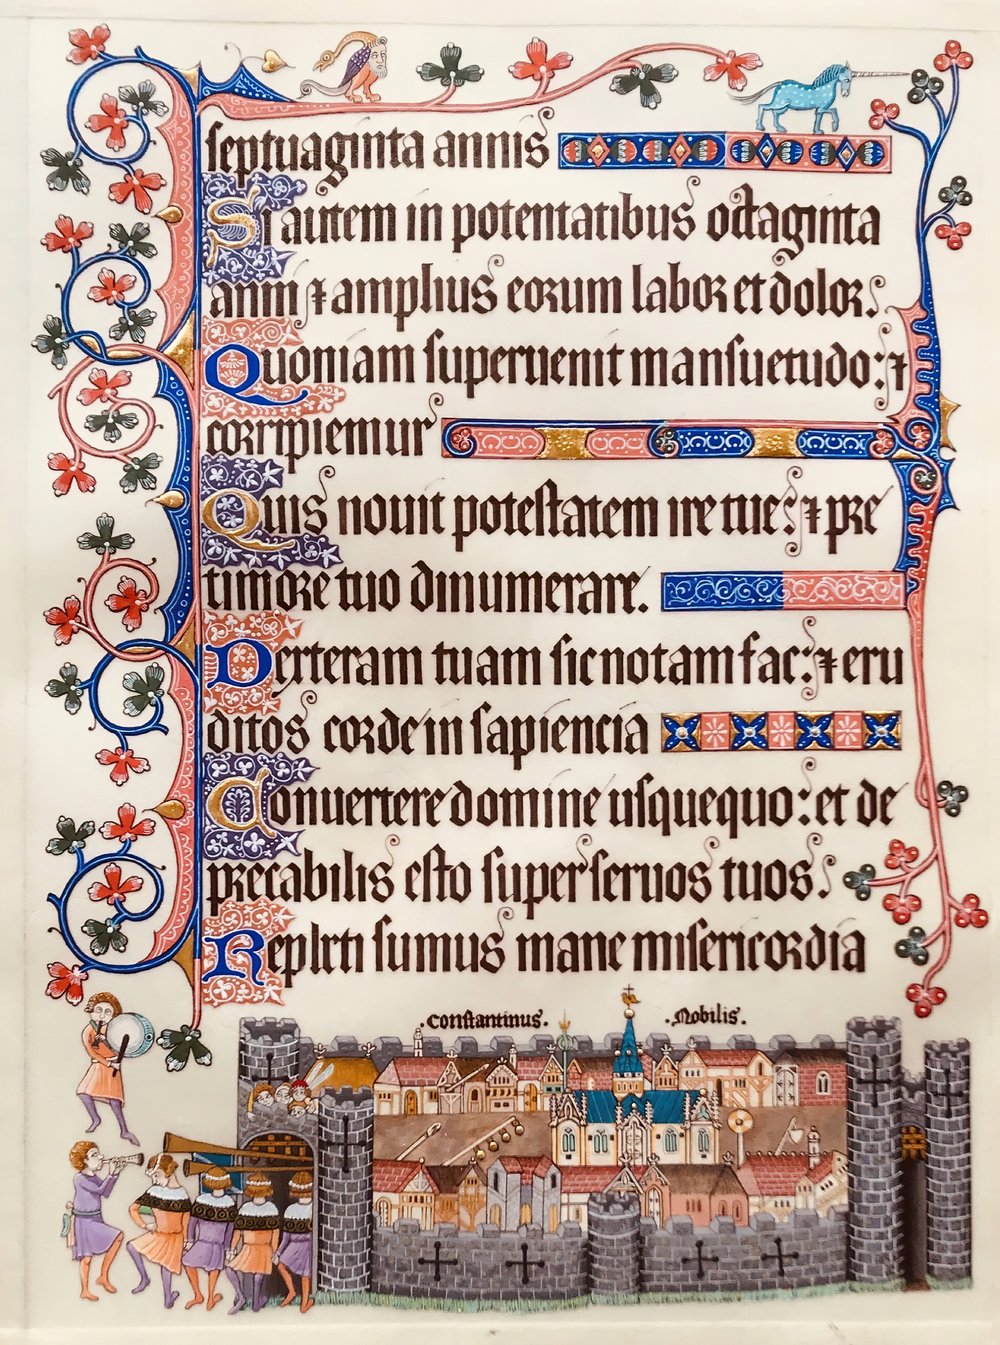 septuaginta annis
Si autem in potentatibus octaginta
anni ⁊ amplius eorum labor et dolor.
Quoniam superuenit mansuetudo: ⁊
corripiemur
Quis nouit potestatem ire tue: ⁊ pre
timore tuo dinumerare.
Dexteram tuam sic notam fac: ⁊ eru
ditos corde in sapiencia
Conuertere domine usquequo: et de
precabilis esto super seruos tuos.
Repleti sumus mane misericordia
.constantinus. .Nobilis.